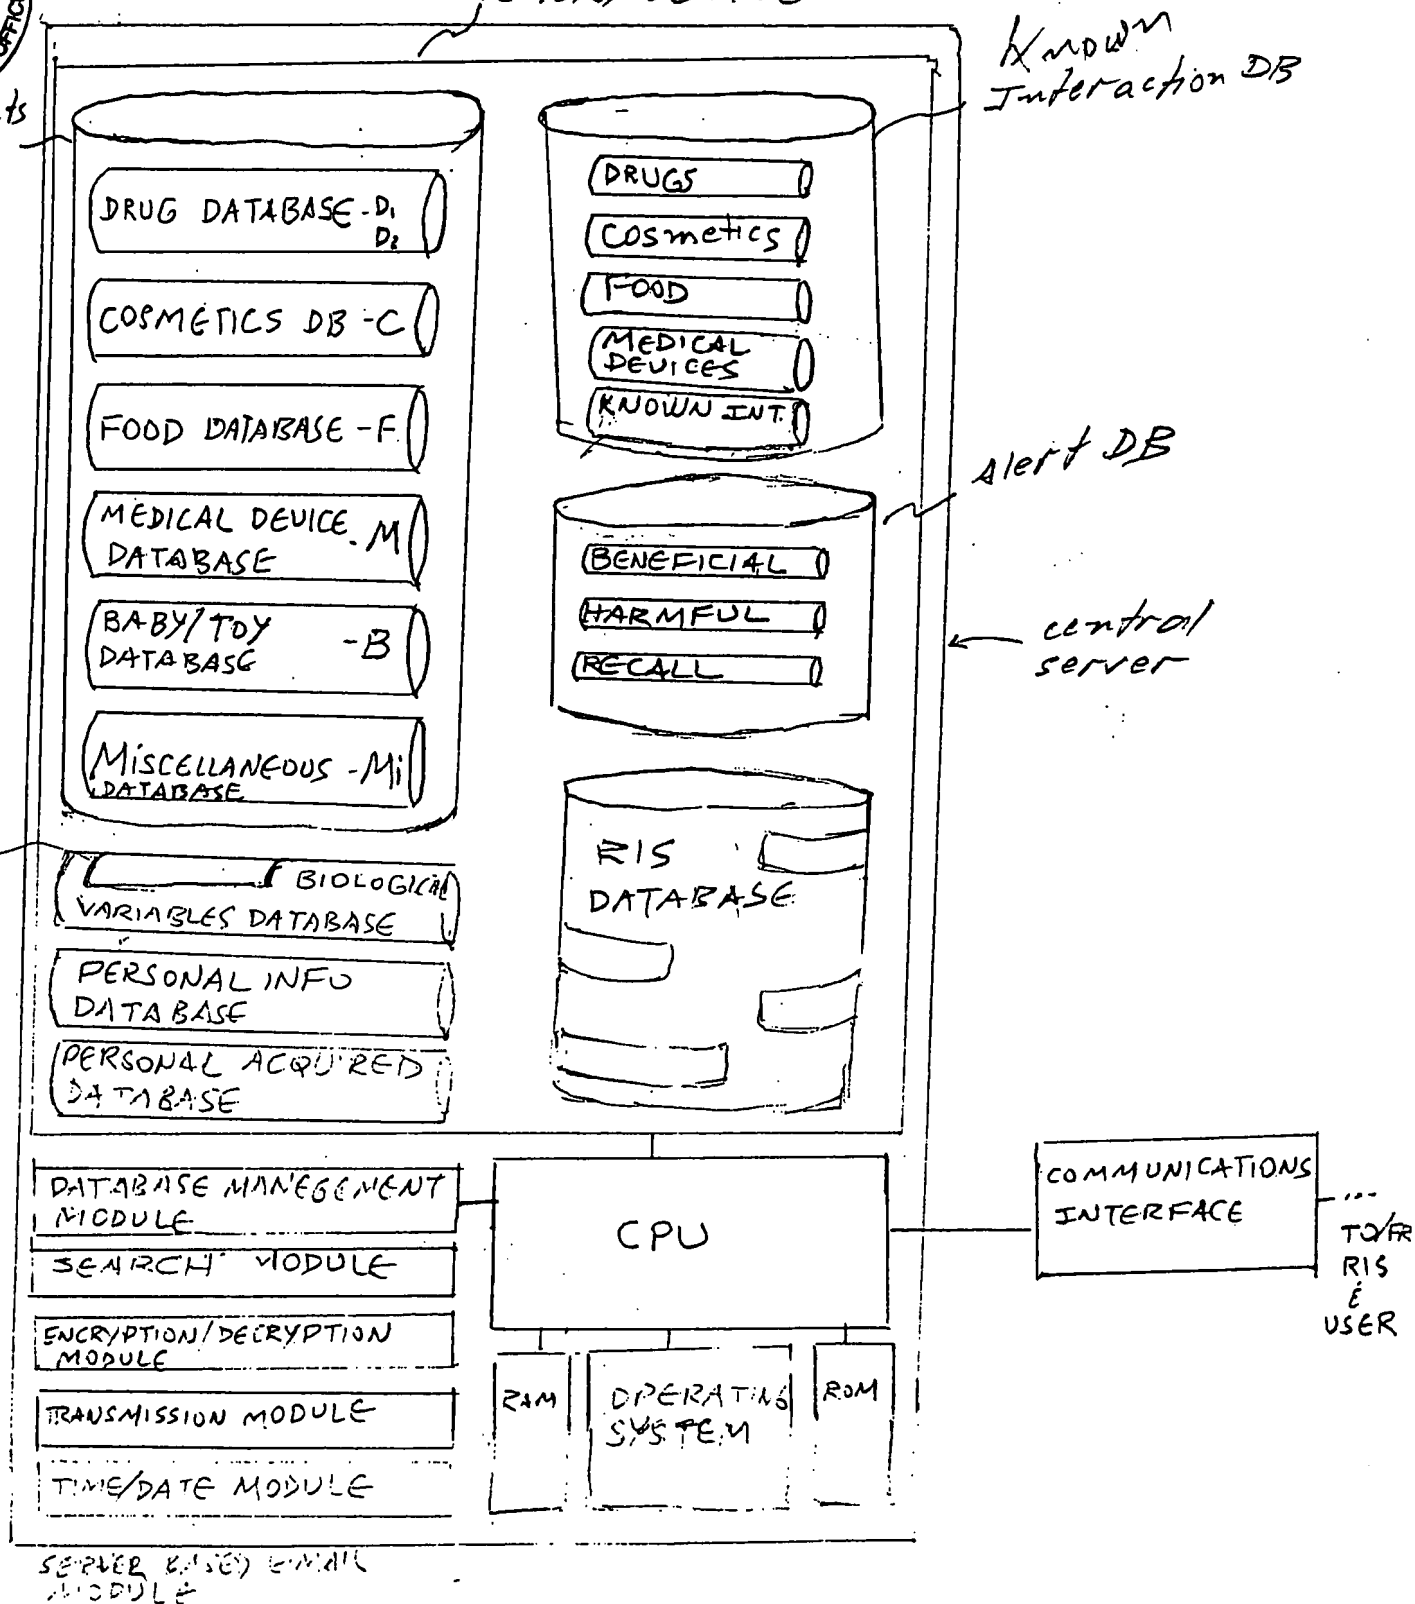 OFFICE
Known
Interaction DB
DRUG DATABASE - D1
D2
COSMETICS DB - C
FOOD DATABASE - F
MEDICAL DEVICE - M
DATABASE
BABY/TOY - B
DATABASE
MISCELLANEOUS - Mi
DATABASE
BIOLOGICAL
VARIABLES DATABASE
PERSONAL INFO
DATABASE
PERSONAL ACQUIRED
DATABASE
DRUGS
Cosmetics
FOOD
MEDICAL
DEVICES
KNOWN INT.
Alert DB
BENEFICIAL
HARMFUL
RECALL
central
server
RIS
DATABASE
DATABASE MANEGEMENT
MODULE
SEARCH MODULE
ENCRYPTION/DECRYPTION
MODULE
TRANSMISSION MODULE
TIME/DATE MODULE
SERVER BASED EMAIL
MODULE
CPU
RAM
OPERATING
SYSTEM
ROM
COMMUNICATIONS
INTERFACE
TO/FR
RIS
&
USER